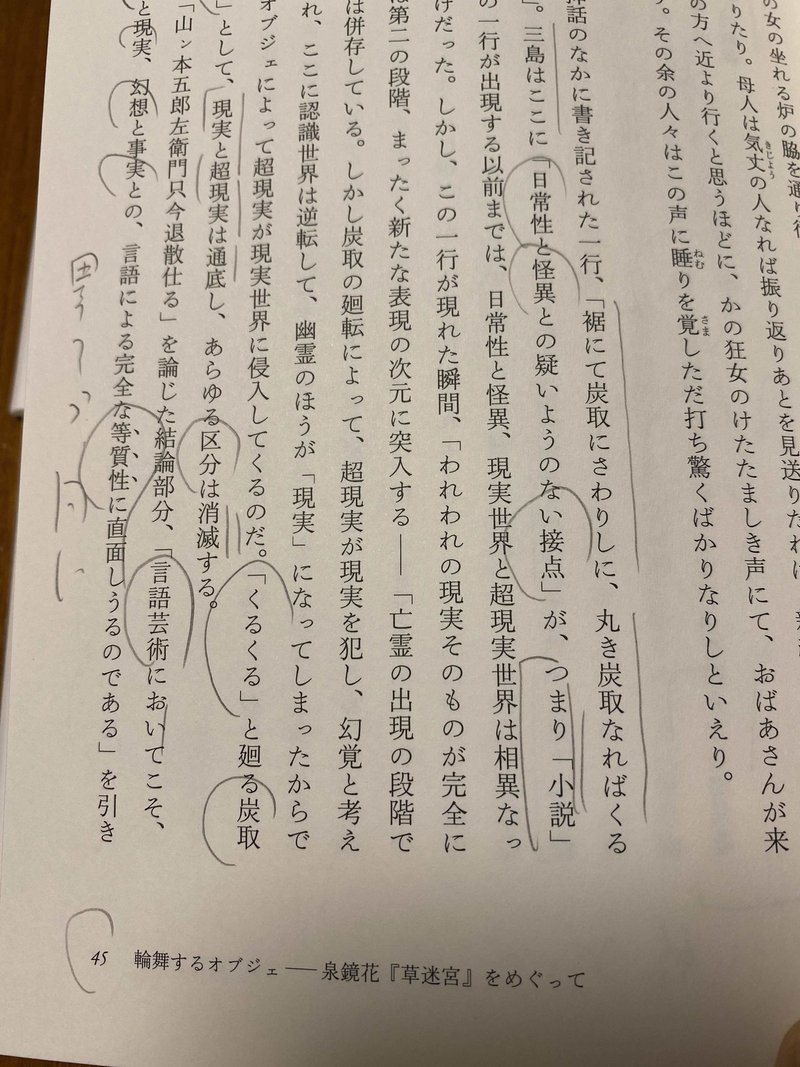 の女の坐れる炉の脇を通り行
りたり。母人は気丈の人なれば振り返りあとを見送りたれば、
の方へ近より行くと思うほどに、かの狂女のけたたましき声にて、おばあさんが来
。その余の人々はこの声に睡りを覚しただ打ち驚くばかりなりしといえり。
挿話のなかに書き記された一行、「裾にて炭取にさわりしに、丸き炭取なればくる
」。三島はここに「日常性と怪異との疑いようのない接点」が、つまり「小説」
の一行が出現する以前までは、日常性と怪異、現実世界と超現実世界は相異なっ
けだった。しかし、この一行が現れた瞬間、「われわれの現実そのものが完全に
は第二の段階、まったく新たな表現の次元に突入する——「亡霊の出現の段階で
は併存している。しかし炭取の廻転によって、超現実が現実を犯し、幻覚と考え
れ、ここに認識世界は逆転して、幽霊のほうが「現実」になってしまったからで
オブジェによって超現実が現実世界に侵入してくるのだ。「くるくる」と廻る炭取
」として、現実と超現実は通底し、あらゆる区分は消滅する。
「山ン本五郎左衛門只今退散仕る」を論じた結論部分、「言語芸術においてこそ、
と現実、幻想と事実との、言語による完全な等質性に直面しうるのである」を引き
45 輪舞するオブジェ——泉鏡花『草迷宮』をめぐって